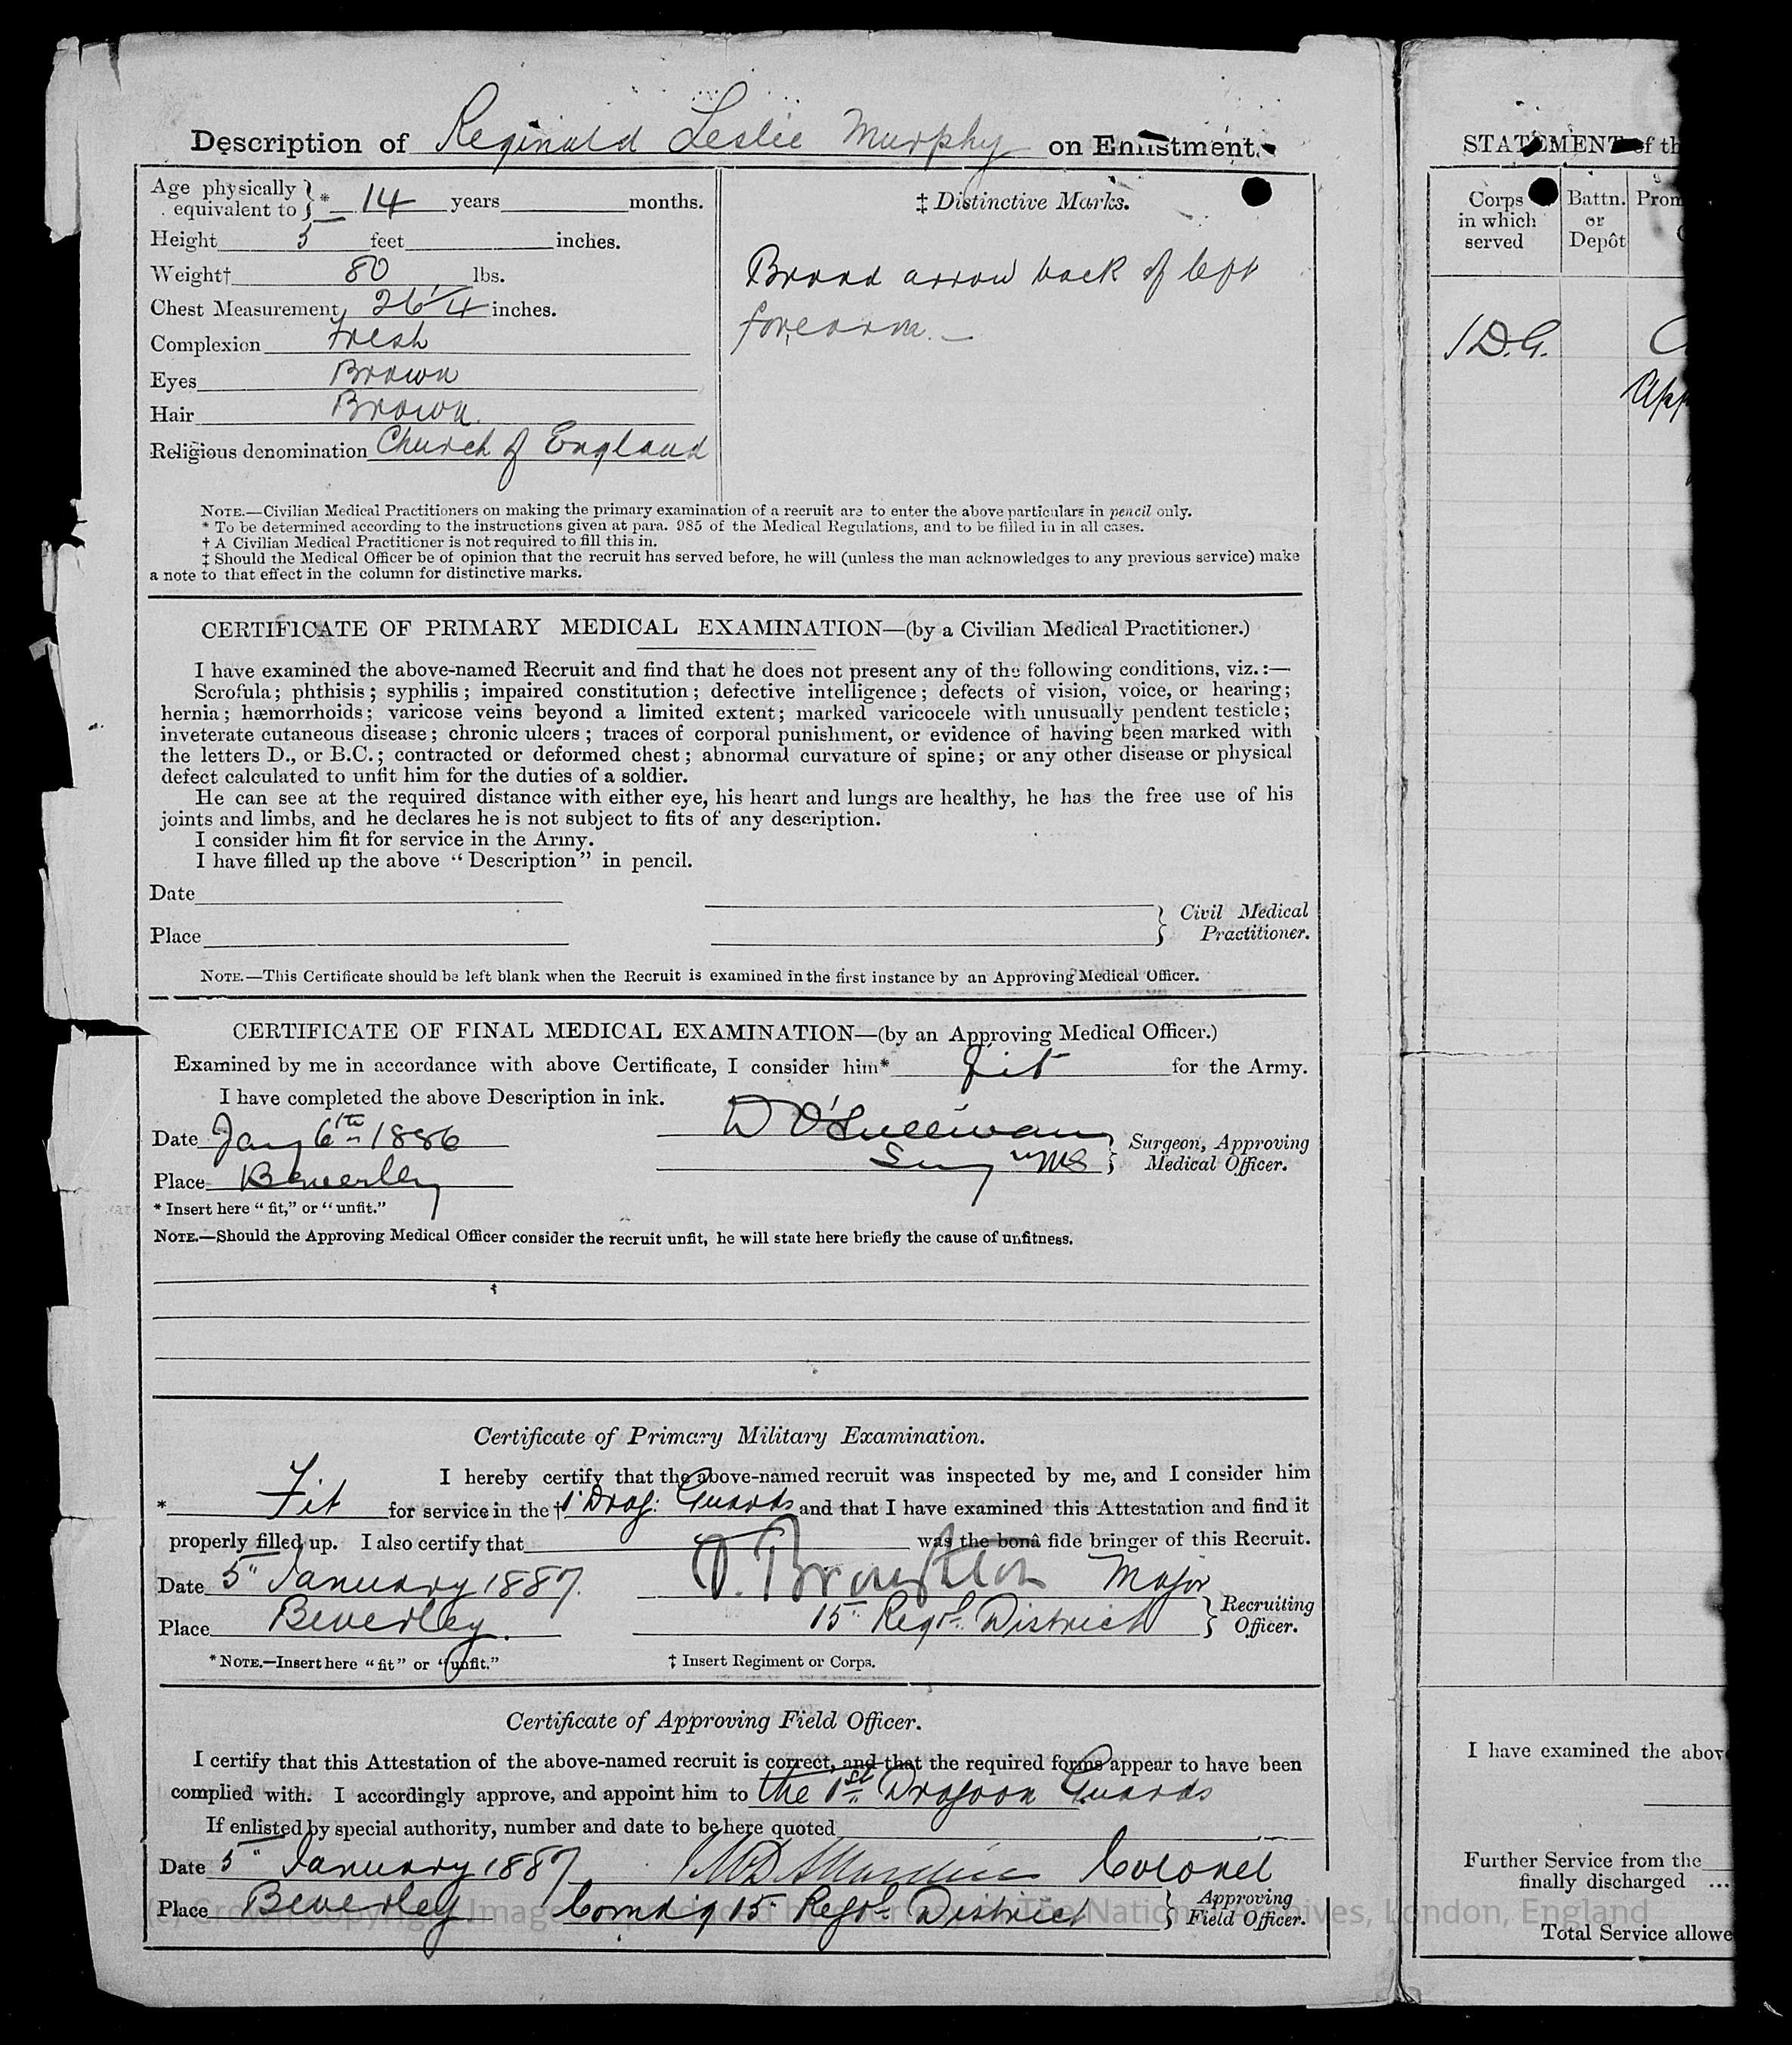 Description of Reginald Leslie Murphy on Enlistment.
Age physically equivalent to } * 14 years months.
Height 5 feet inches.
Weight† 80 lbs.
Chest Measurement 26 1/4 inches.
Complexion Fresh
Eyes Brown
Hair Brown
Religious denomination Church of England
‡ Distinctive Marks.
Broad arrow back of left
forearm. —
NOTE.—Civilian Medical Practitioners on making the primary examination of a recruit are to enter the above particulars in pencil only.
* To be determined according to the instructions given at para. 985 of the Medical Regulations, and to be filled in in all cases.
† A Civilian Medical Practitioner is not required to fill this in.
‡ Should the Medical Officer be of opinion that the recruit has served before, he will (unless the man acknowledges to any previous service) make
a note to that effect in the column for distinctive marks.
CERTIFICATE OF PRIMARY MEDICAL EXAMINATION—(by a Civilian Medical Practitioner.)
I have examined the above-named Recruit and find that he does not present any of the following conditions, viz.:—
Scrofula; phthisis; syphilis; impaired constitution; defective intelligence; defects of vision, voice, or hearing;
hernia; hæmorrhoids; varicose veins beyond a limited extent; marked varicocele with unusually pendent testicle;
inveterate cutaneous disease; chronic ulcers; traces of corporal punishment, or evidence of having been marked with
the letters D., or B.C.; contracted or deformed chest; abnormal curvature of spine; or any other disease or physical
defect calculated to unfit him for the duties of a soldier.
He can see at the required distance with either eye, his heart and lungs are healthy, he has the free use of his
joints and limbs, and he declares he is not subject to fits of any description.
I consider him fit for service in the Army.
I have filled up the above "Description" in pencil.
Date
Place
} Civil Medical
Practitioner.
NOTE.—This Certificate should be left blank when the Recruit is examined in the first instance by an Approving Medical Officer.
CERTIFICATE OF FINAL MEDICAL EXAMINATION—(by an Approving Medical Officer.)
Examined by me in accordance with above Certificate, I consider him* fit for the Army.
I have completed the above Description in ink.
Date Jany 6th 1886 D O'Sullivan } Surgeon, Approving
Place Beverley Surgn MS Medical Officer.
* Insert here "fit," or "unfit."
NOTE.—Should the Approving Medical Officer consider the recruit unfit, he will state here briefly the cause of unfitness.
Certificate of Primary Military Examination.
I hereby certify that the above-named recruit was inspected by me, and I consider him
* Fit for service in the † 1' Drag: Guards and that I have examined this Attestation and find it
properly filled up. I also certify that was the bonâ fide bringer of this Recruit.
Date 5" January 1887. Major
Place Beverley. 15" Regtl. District } Recruiting Officer.
* NOTE.—Insert here "fit" or "unfit." ‡ Insert Regiment or Corps.
Certificate of Approving Field Officer.
I certify that this Attestation of the above-named recruit is correct, and that the required forms appear to have been
complied with. I accordingly approve, and appoint him to the 1st Dragoon Guards
If enlisted by special authority, number and date to be here quoted
Date 5" January 1887 Colonel
Place Beverley Comdg 15 Regtl. District } Approving Field Officer.
(c) Crown Copyright Images reproduced by courtesy of The National Archives, London, England
STATEMENT of th
Corps
in which
served
Battn.
or
Depôt
Prom
1 D.G.
App
I have examined the abov
Further Service from the
finally discharged ...
Total Service allowe